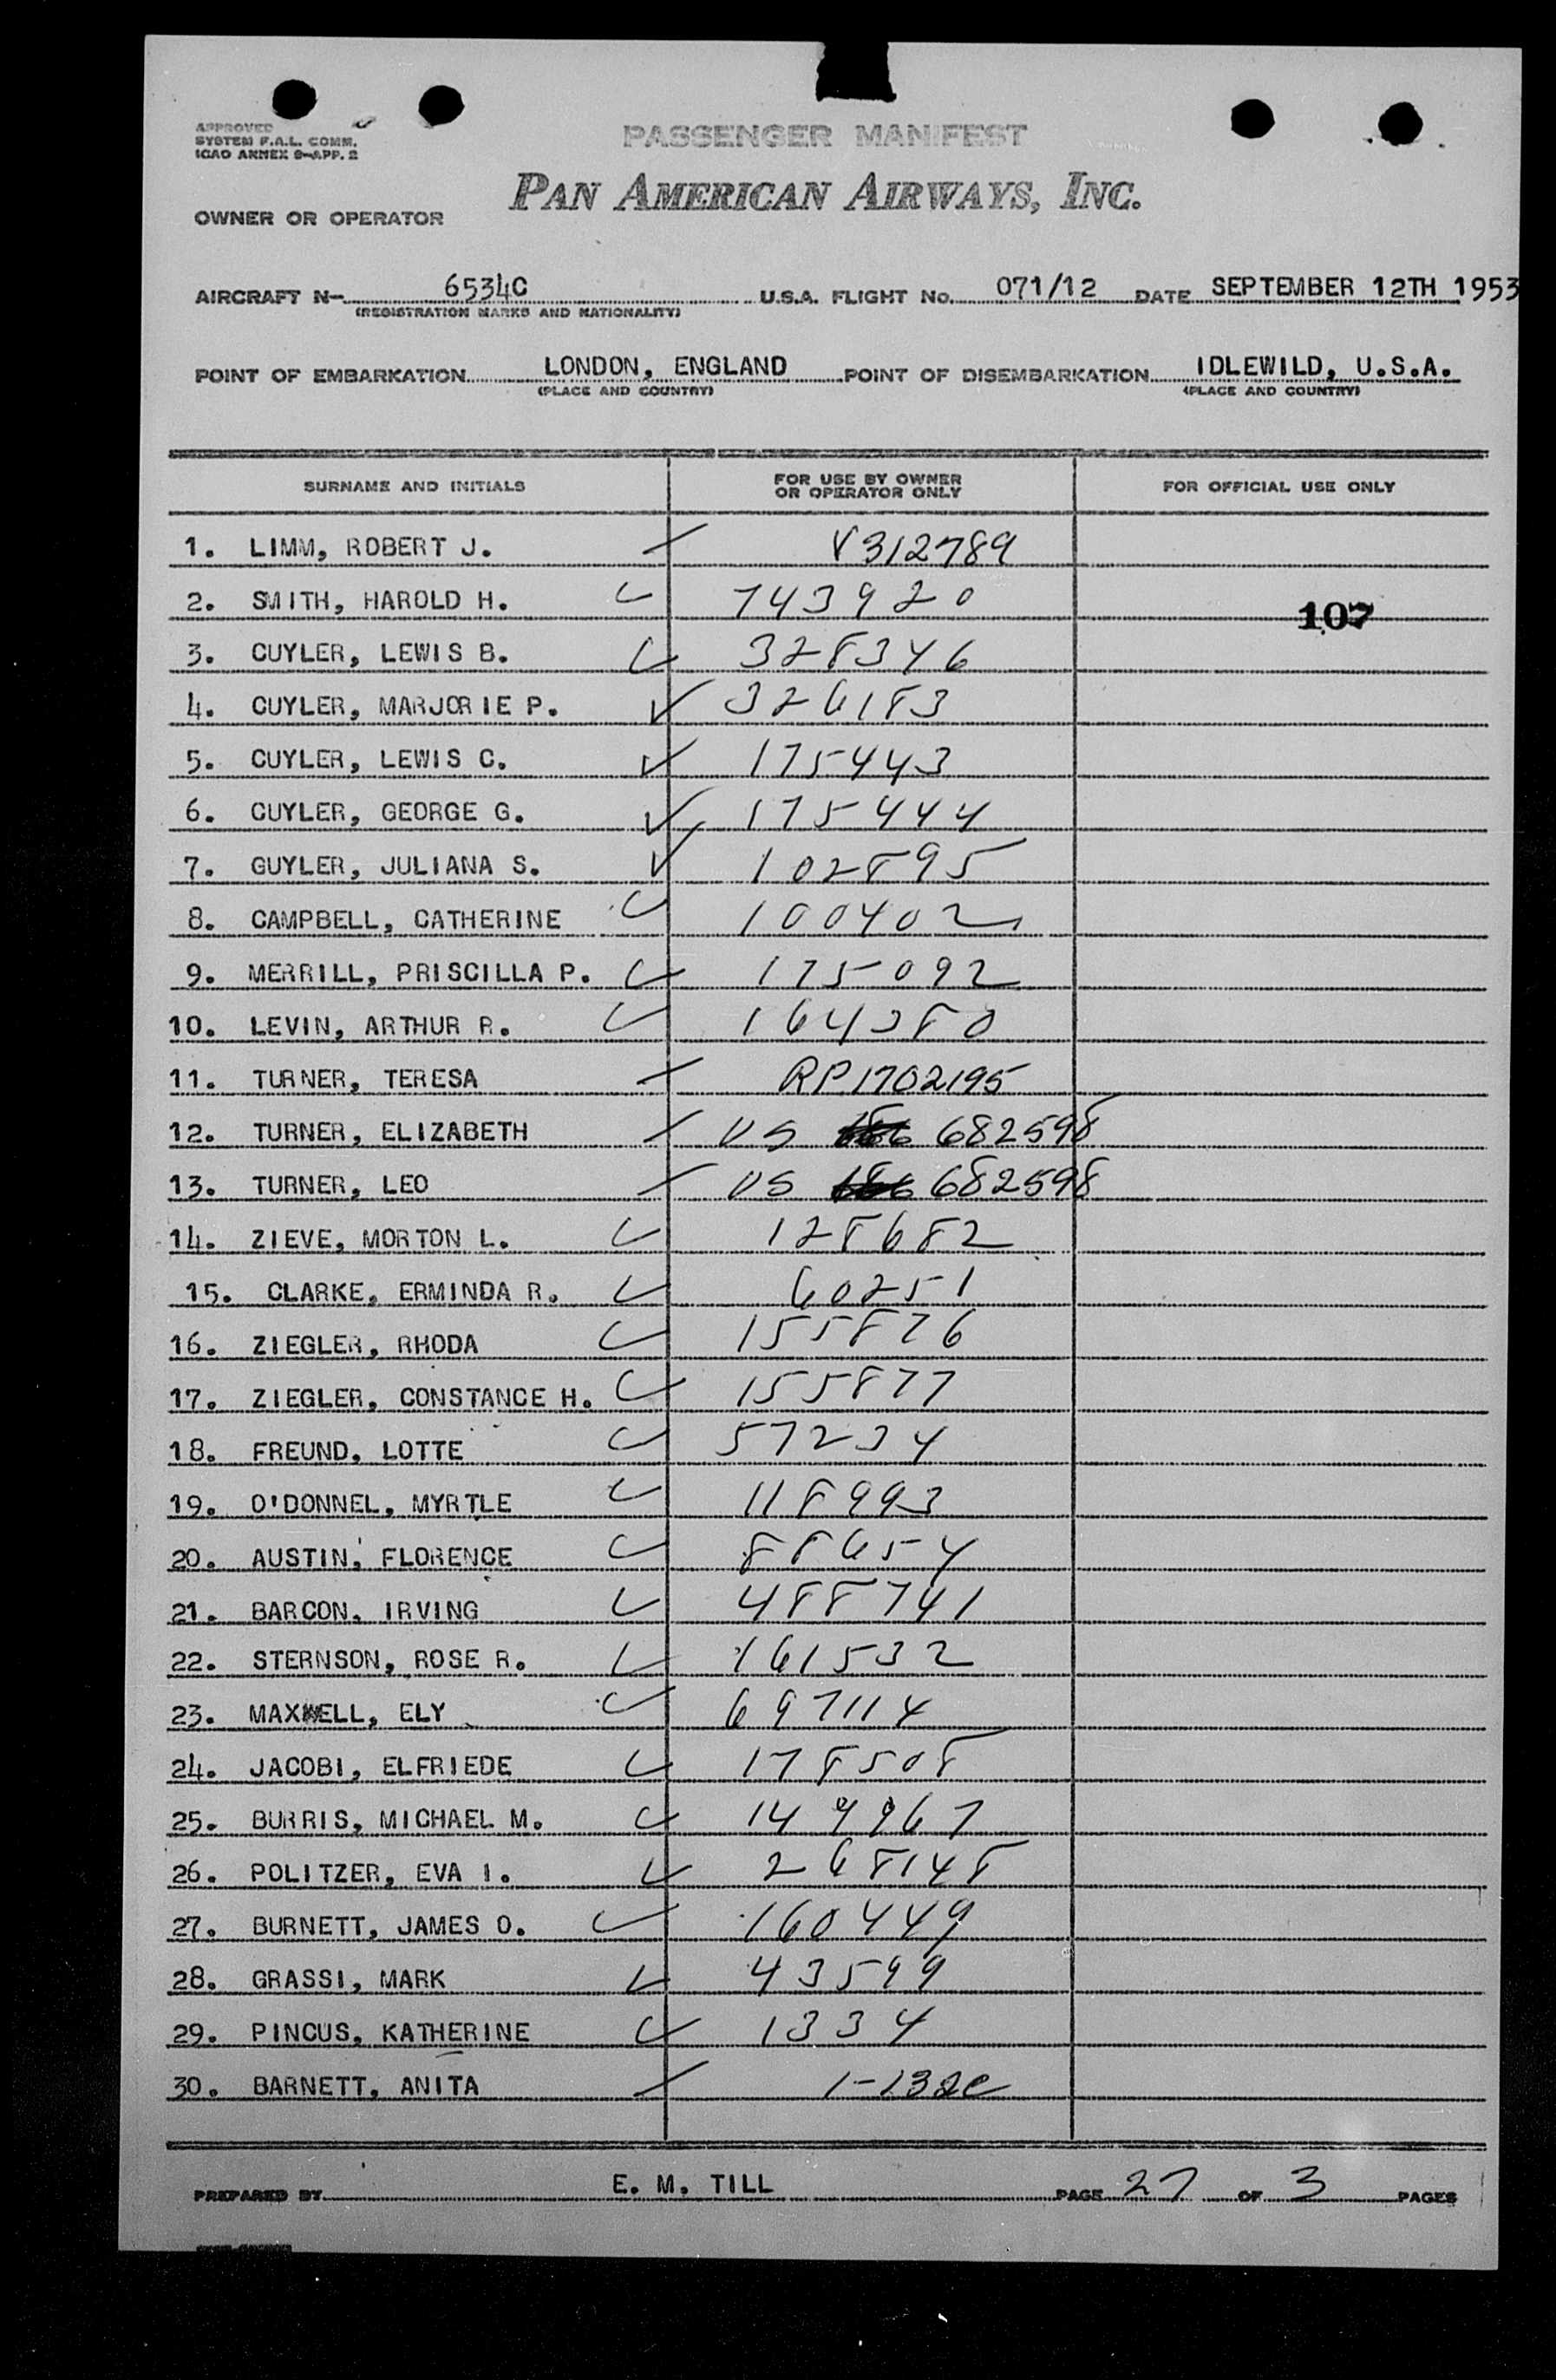 APPROVED
SYSTEM F.A.L. COMM.
ICAO ANNEX 9-APP. 2
PASSENGER MANIFEST
PAN AMERICAN AIRWAYS, INC.
OWNER OR OPERATOR
AIRCRAFT N- 6534C U.S.A. FLIGHT No. 071/12 DATE SEPTEMBER 12TH 1953
(REGISTRATION MARKS AND NATIONALITY)
POINT OF EMBARKATION LONDON, ENGLAND POINT OF DISEMBARKATION IDLEWILD, U.S.A.
(PLACE AND COUNTRY) (PLACE AND COUNTRY)
SURNAME AND INITIALS FOR USE BY OWNER OR OPERATOR ONLY FOR OFFICIAL USE ONLY
1. LIMM, ROBERT J. V312789
2. SMITH, HAROLD H. 743920 107
3. CUYLER, LEWIS B. 328346
4. CUYLER, MARJORIE P. 326183
5. CUYLER, LEWIS C. 175443
6. CUYLER, GEORGE G. 175444
7. GUYLER, JULIANA S. 102895
8. CAMPBELL, CATHERINE 100402
9. MERRILL, PRISCILLA P. 175092
10. LEVIN, ARTHUR R. 164380
11. TURNER, TERESA RP1702195
12. TURNER, ELIZABETH US 682598
13. TURNER, LEO US 682598
14. ZIEVE, MORTON L. 128682
15. CLARKE, ERMINDA R. 60251
16. ZIEGLER, RHODA 155876
17. ZIEGLER, CONSTANCE H. 155877
18. FREUND, LOTTE 57234
19. O'DONNEL, MYRTLE 118993
20. AUSTIN, FLORENCE 88654
21. BARCON, IRVING 488741
22. STERNSON, ROSE R. 161532
23. MAXWELL, ELY 697114
24. JACOBI, ELFRIEDE 178508
25. BURRIS, MICHAEL M. 149967
26. POLITZER, EVA I. 268148
27. BURNETT, JAMES O. 160449
28. GRASSI, MARK 43599
29. PINCUS, KATHERINE 1334
30. BARNETT, ANITA
PREPARED BY E. M. TILL PAGE 27 OF 3 PAGES